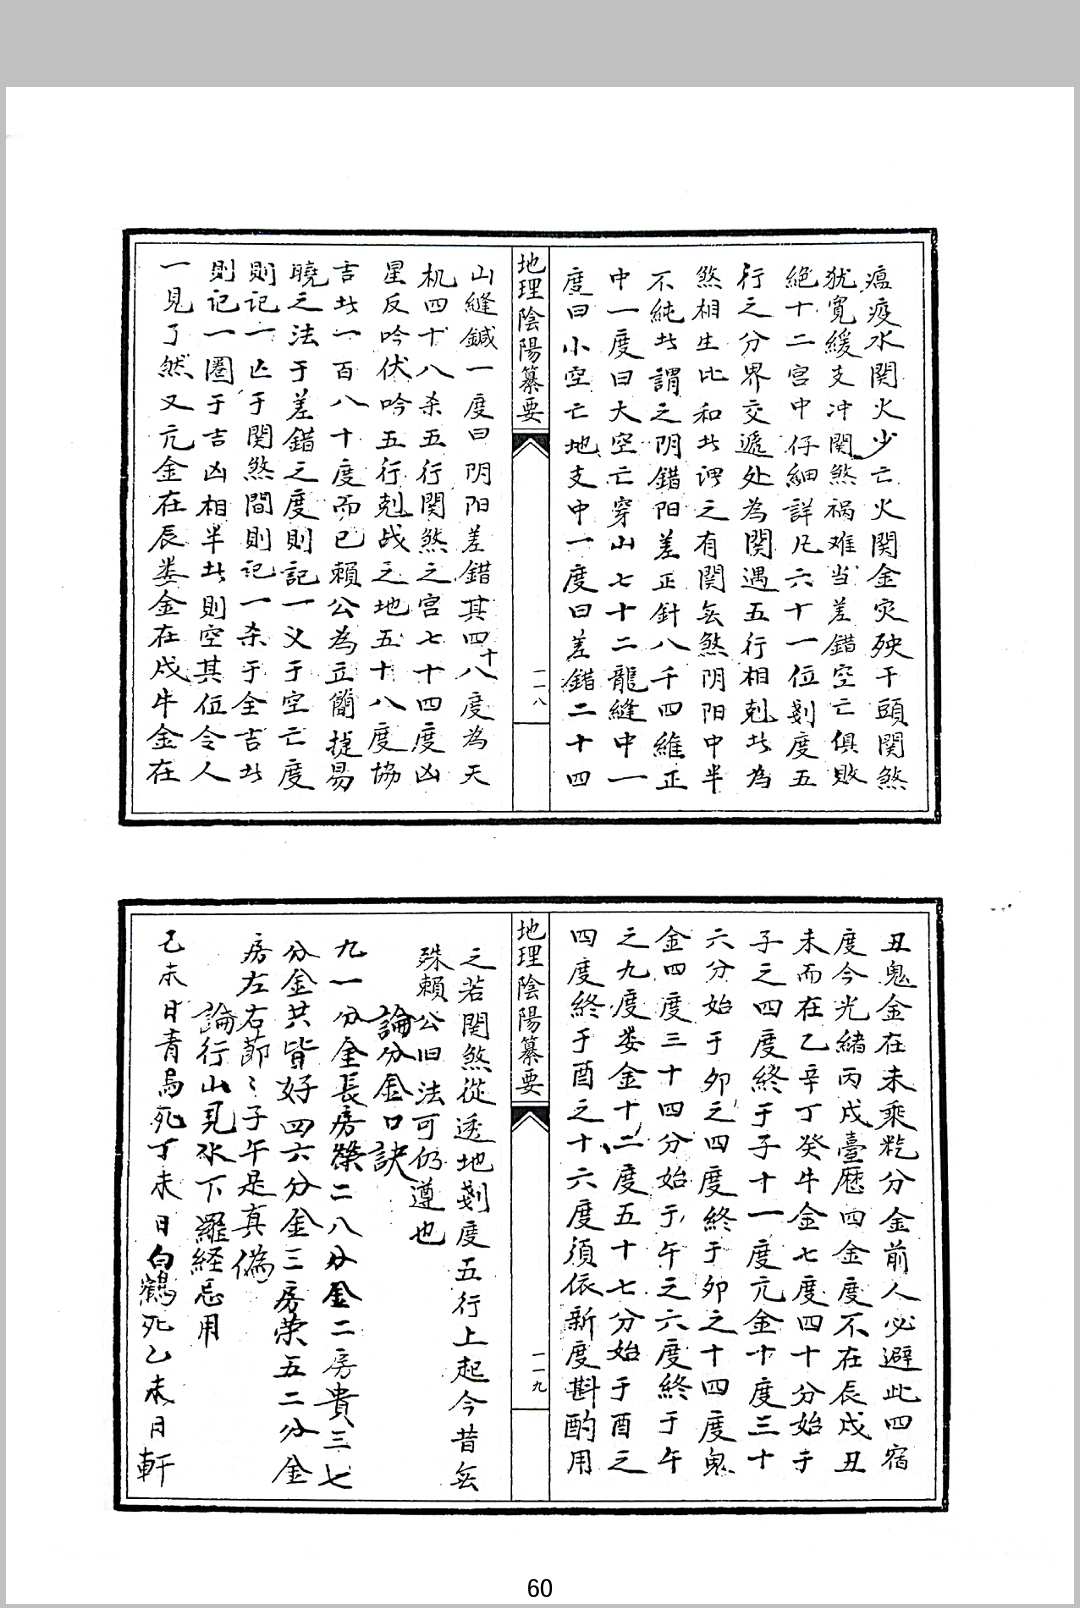 瘟疫水関火少亡火関金灾殃干頭関煞
犹寛緩支冲関煞祸难当差錯空亡俱敗
絶十二宮中仔細詳凡六十一位剝度五
行之分界交遞处為関遇五行相剋此為
煞相生比和此谓之有関無煞阴阳中半
不純此謂之阴錯阳差正針八千四維正
中一度曰大空亡穿山七十二龍縫中一
度曰小空亡地支中一度曰差錯二十四
地理陰陽纂要
一一八
山縫鍼一度曰阴阳差錯其四十八度為天
机四十八杀五行関煞之宮七十四度凶
星反吟伏吟五行剋战之地五十八度協
吉此一百八十度而已賴公為立簡捷易
曉之法于差錯之度則記一义于空亡度
則記一亾于関煞間則记一杀于全吉此
則记一圈于吉凶相半此則空其位令人
一見了然又亢金在辰娄金在戌牛金在
丑鬼金在未乘䊠分金前人必避此四宿
度今光緒丙戌臺歷四金度不在辰戌丑
未而在乙辛丁癸牛金七度四十分始于
子之四度終于子十一度亢金十度三十
六分始于卯之四度終于卯之十四度鬼
金四度三十四分始于午之六度終于午
之九度娄金十二度五十七分始于酉之
四度終于酉之十六度須依新度斟酌用
地理陰陽纂要
一一九
之若関煞從透地剝度五行上起今昔無
殊賴公旧法可仍遵也
論分金口訣
九一分金長房榮二八分金二房貴三七
分金共皆好四六分金三房荣五二分金
房左右莭〻子午是真僞
論行山見水下羅経忌用
己未日青烏死丁未日白鶴死乙未月軒
60